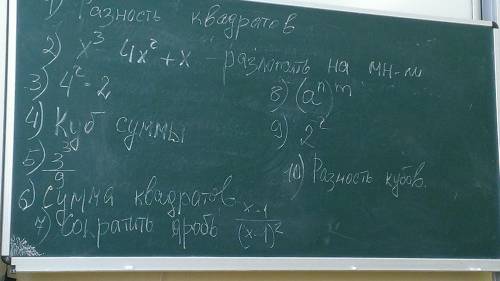 1) Разность квадратов
2) x³ 4x² + x - разложить на мн-ли
3) 4² · 2
4) Куб суммы
5) 3³/9
6) Сумма квадратов
7) Сократить дробь x-1/(x-1)²
8) (aⁿ)ᵐ
9) 2²
10) Разность кубов.